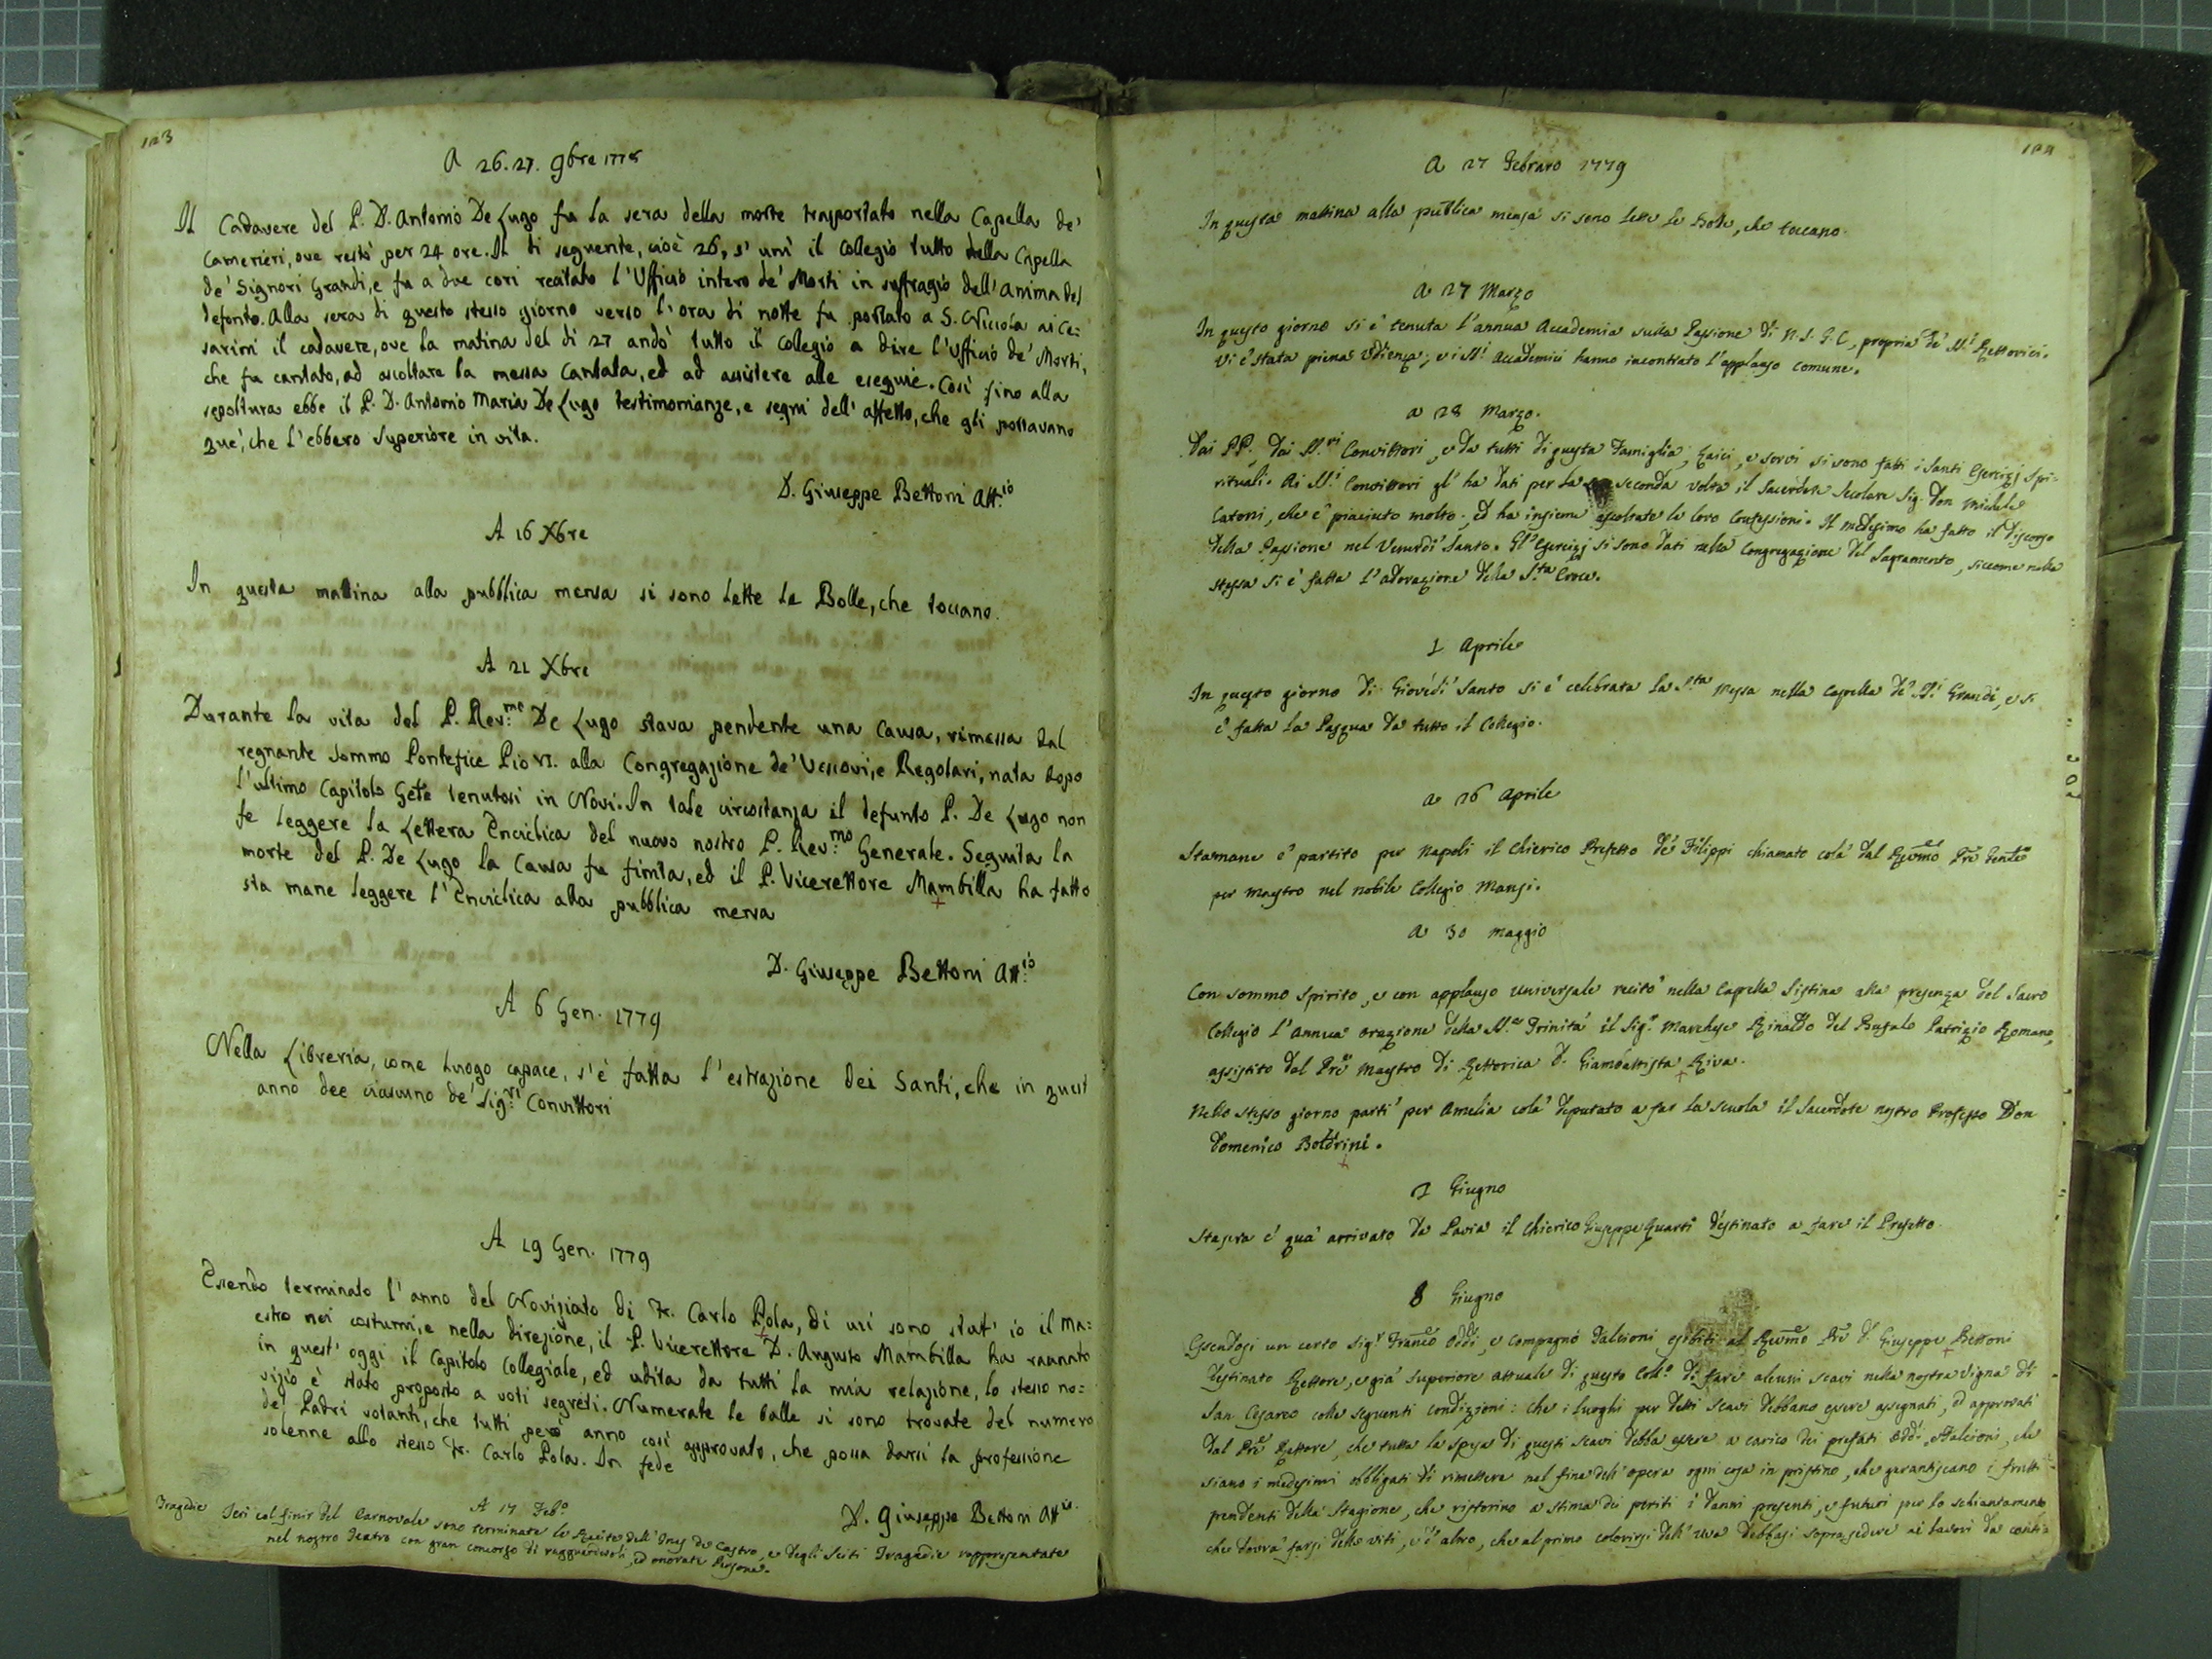 123
A 26.27. 9bre 1778
Il Cadavere del P. D. Antonio De Lugo fu la sera della morte trasportato nella Capella de'
Camerieri, ove restò per 24 ore. Il di seguente, cioè 26, s' unì il Collegio tutto nella Capella
de' Signori Grandi, e fu a due cori recitato l'Ufficio intero de' Morti in suffragio dell'anima del
defonto. Alla sera di questo stesso giorno verso l'ora di notte fu portato a S. Niccola ai Ce=
sarini il cadavere, ove la matina del di 27 andò tutto il Collegio a dire l'Ufficio de' Morti,
che fu cantato, ad ascoltare la messa cantata, ed ad assistere alle esequie. Così fino alla
sepoltura ebbe il P. D. Antonio Maria De Lugo testimonianze, e segni dell' affetto, che gli portavano
que', che l'ebbero Superiore in vita.
D. Giuseppe Bettoni Att.io
A 16 Xbre
In questa mattina alla pubblica mensa si sono lette le Bolle, che toccano.
A 21 Xbre
Durante la vita del P. Rev.me De Lugo stava pendente una Causa, rimessa dal
regnante Sommo Pontefice Pio VI. alla Congregazione de' Vescovi, e Regolari, nata dopo
l'ultimo Capitolo Gẽle tenutosi in Novi. In tale circostanza il defunto P. De Lugo non
fe leggere la Lettera Enciclica del nuovo nostro P. Rev.mo Generale. Seguita la
morte del P. De Lugo la Causa fu finita, ed il P. Vicerettore Mambilla ha fatto
sta mane leggere l'Enciclica alla pubblica mensa
D. Giuseppe Bettoni Att.io
A 6 Gen. 1779
Nella Libreria, come luogo capace, s'è fatta l'estrazione dei Santi, che in quest
anno dee ciascuno de' Sig.ri Convittori
A 19 Gen. 1779
Essendo terminato l'anno del Noviziato di Fr. Carlo Pola, di cui sono stat' io il Ma=
estro nei costumi, e nella direzione, il P. Vicerettore D. Angusto Mambilla ha raunato
in quest' oggi il Capitolo Collegiale, ed udita da tutti la mia relazione, lo stesso no=
vizio è stato proposto a voti segreti. Numerate le balle si sono trovate del numero
dei Padri votanti, che tutti però anno così approvato, che possa darsi la professione
solenne allo stesso Fr. Carlo Pola. In fede
D. Giuseppe Bettoni Att.io
A 17 Feb.o
Tragedie Ieri col finir del Carnovale sono terminate le Recite dell' Ines de Castro, e degli Sciti Tragedie rappresentate
nel nostro Teatro con gran concorso di ragguardevoli, ed onorate Persone.
124
A 27 Febraro 1779
In questa mattina alla publica mensa si sono lette le Bolle, che toccano.
A 27 Marzo
In questo giorno si è tenuta l'annua Accademia sulla Passione di N. S. G. C, propria de' SS.i Rettorici.
Vi è stata piena Udienza; e i SS.i Accademici hanno incontrato l'applauso comune.
A 28 Marzo.
Dai PP., dai SS.ri Convittori, e da tutti di questa Famiglia, Laici, e servi si sono fatti i Santi Esercizj Spi=
rituali. Ai SS.i Convittori gl' ha dati per la seconda volta il Sacerdote Secolare Sig. Don Michele
Catoni, che è piaciuto molto; ed ha insieme ascoltate le loro Confessioni. Il medesimo ha fatto il discorso
della Passione nel Venerdì Santo. Gl' Esercizj si sono dati nella Congregazione del Sagramento, siccome nella
stessa si è fatta l'adorazione della S.ta Croce.
1 Aprile
In questo giorno di Giovedì Santo si è celebrata la S.ta Messa nella Capella de' SS.i Grandi, e si
è fatta la Pasqua da tutto il Collegio.
A 26 Aprile
Stamane è partito per Napoli il Chierico Prefetto de' Filippi chiamato colà dal Rev̄mo Prẽ Genĩe
per Maestro nel nobile Collegio Mansi.
A 30 Maggio
Con sommo spirito, e con applauso universale recitò nella Capella Sistina alla presenza del Sacro
Collegio l'annua orazione della SS.a Trinità il Sig.r Marchese Rinaldo del Bufalo Patrizio Romano,
assistito dal Prẽ Maestro di Rettorica D. Giambattista Riva.
Nello stesso giorno partì per Amelia colà deputato a far la scuola il Sacerdote nostro Professo Don
Domenico Boldrini.
1 Giugno
Stasera è quà arrivato da Pavia il Chierico Giuseppe Quarti destinato a fare il Prefetto.
8 Giugno
Essendosi un certo Sig.r Franc̃o Oddi, e Compagno Balcioni esibiti al Rev̄mo Prẽ D. Giuseppe Bettoni
destinato Rettore, e già Superiore attuale di questo Coll.o di fare alcuni scavi nella nostra vigna di
San Cesareo colle seguenti condizioni: che i luoghi per detti scavi debbano essere assegnati, ed approvati
dal Prẽ Rettore, che tutta la spesa di questi scavi debba essere a carico dei prefati Oddi, e Balcioni, che
siano i medesimi obbligati di rimettere nel fine dell' opera ogni cosa in pristino, che garantiscano i frutti
pendenti della Stagione, che ristorino a stima dei periti i danni presenti, e futuri per lo schiantamento
che dovrà farsi delle viti, e d' altro, che al primo colorirsi dell' uva debbasi soprasedere ai lavori da conti=